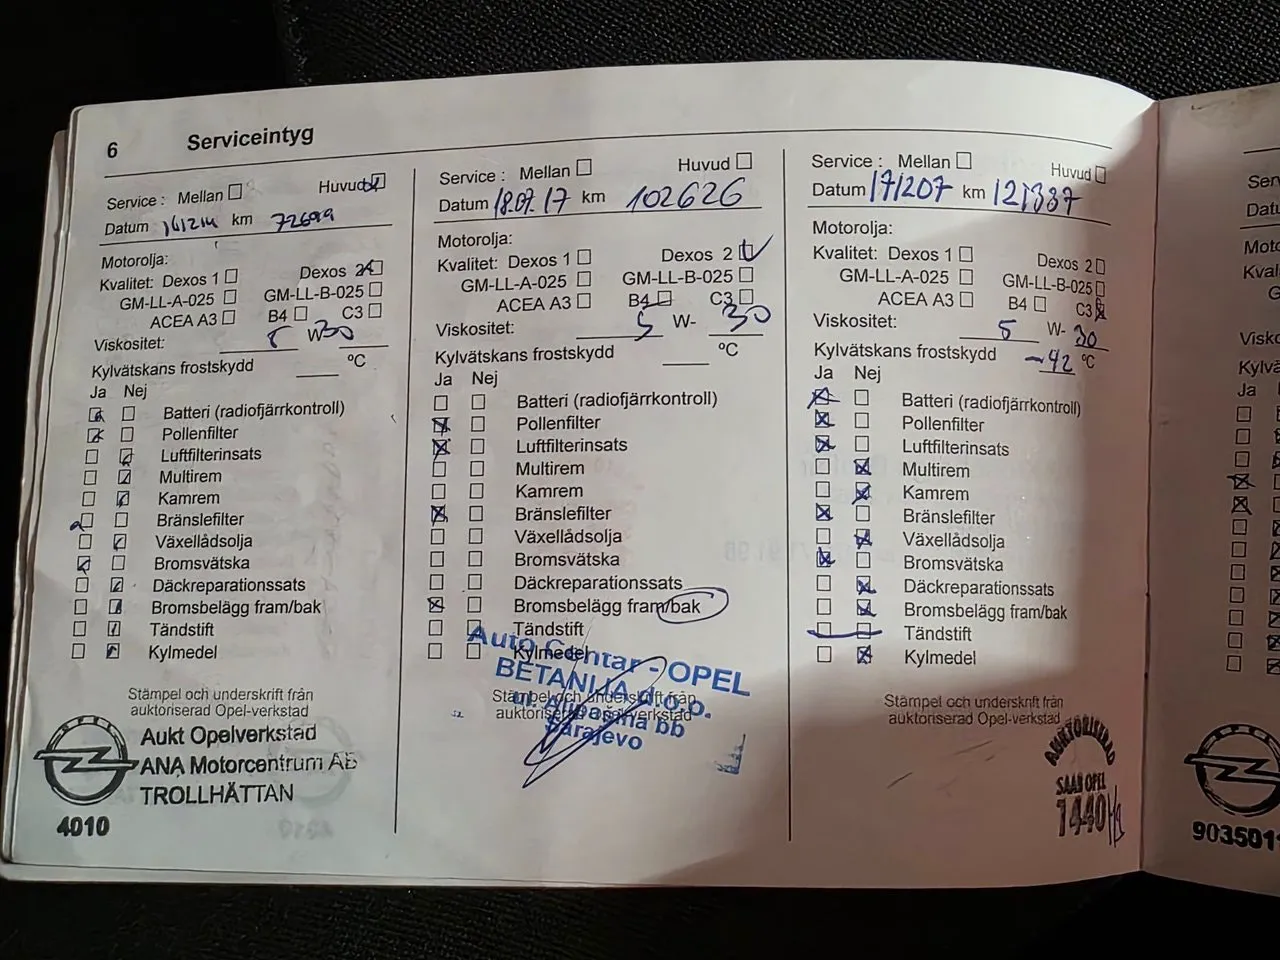 6 Serviceintyg
Service : Mellan Huvud
Datum 161214 km
Motorolja:
Kvalitet: Dexos 1 Dexos 2
GM-LL-A-025 GM-LL-B-025
ACEA A3 B4 C3
Viskositet: 5 W 30
Kylvätskans frostskydd °C
Ja Nej
Batteri (radiofjärrkontroll)
Pollenfilter
Luftfilterinsats
Multirem
Kamrem
Bränslefilter
Växellådsolja
Bromsvätska
Däckreparationssats
Bromsbelägg fram/bak
Tändstift
Kylmedel
Stämpel och underskrift från
auktoriserad Opel-verkstad
Aukt Opelverkstad
ANA Motorcentrum AB
TROLLHÄTTAN
4010
Service : Mellan Huvud
Datum 18.07.17 km 102626
Motorolja:
Kvalitet: Dexos 1 Dexos 2
GM-LL-A-025 GM-LL-B-025
ACEA A3 B4 C3
Viskositet: 5 W- 30
Kylvätskans frostskydd °C
Ja Nej
Batteri (radiofjärrkontroll)
Pollenfilter
Luftfilterinsats
Multirem
Kamrem
Bränslefilter
Växellådsolja
Bromsvätska
Däckreparationssats
Bromsbelägg fram/bak
Tändstift
Kylmedel
Stämpel och underskrift från
auktoriserad Opel-verkstad
Auto Centar - OPEL
BETANIJA d.o.o.
ul. Alipašina bb
Sarajevo
Service : Mellan Huvud
Datum 171207 km 121387
Motorolja:
Kvalitet: Dexos 1 Dexos 2
GM-LL-A-025 GM-LL-B-025
ACEA A3 B4 C3
Viskositet: 5 W- 30
Kylvätskans frostskydd -42 °C
Ja Nej
Batteri (radiofjärrkontroll)
Pollenfilter
Luftfilterinsats
Multirem
Kamrem
Bränslefilter
Växellådsolja
Bromsvätska
Däckreparationssats
Bromsbelägg fram/bak
Tändstift
Kylmedel
Stämpel och underskrift från
auktoriserad Opel-verkstad
AUKTORISERAD
SAAB OPEL
1440
Ja
9035011